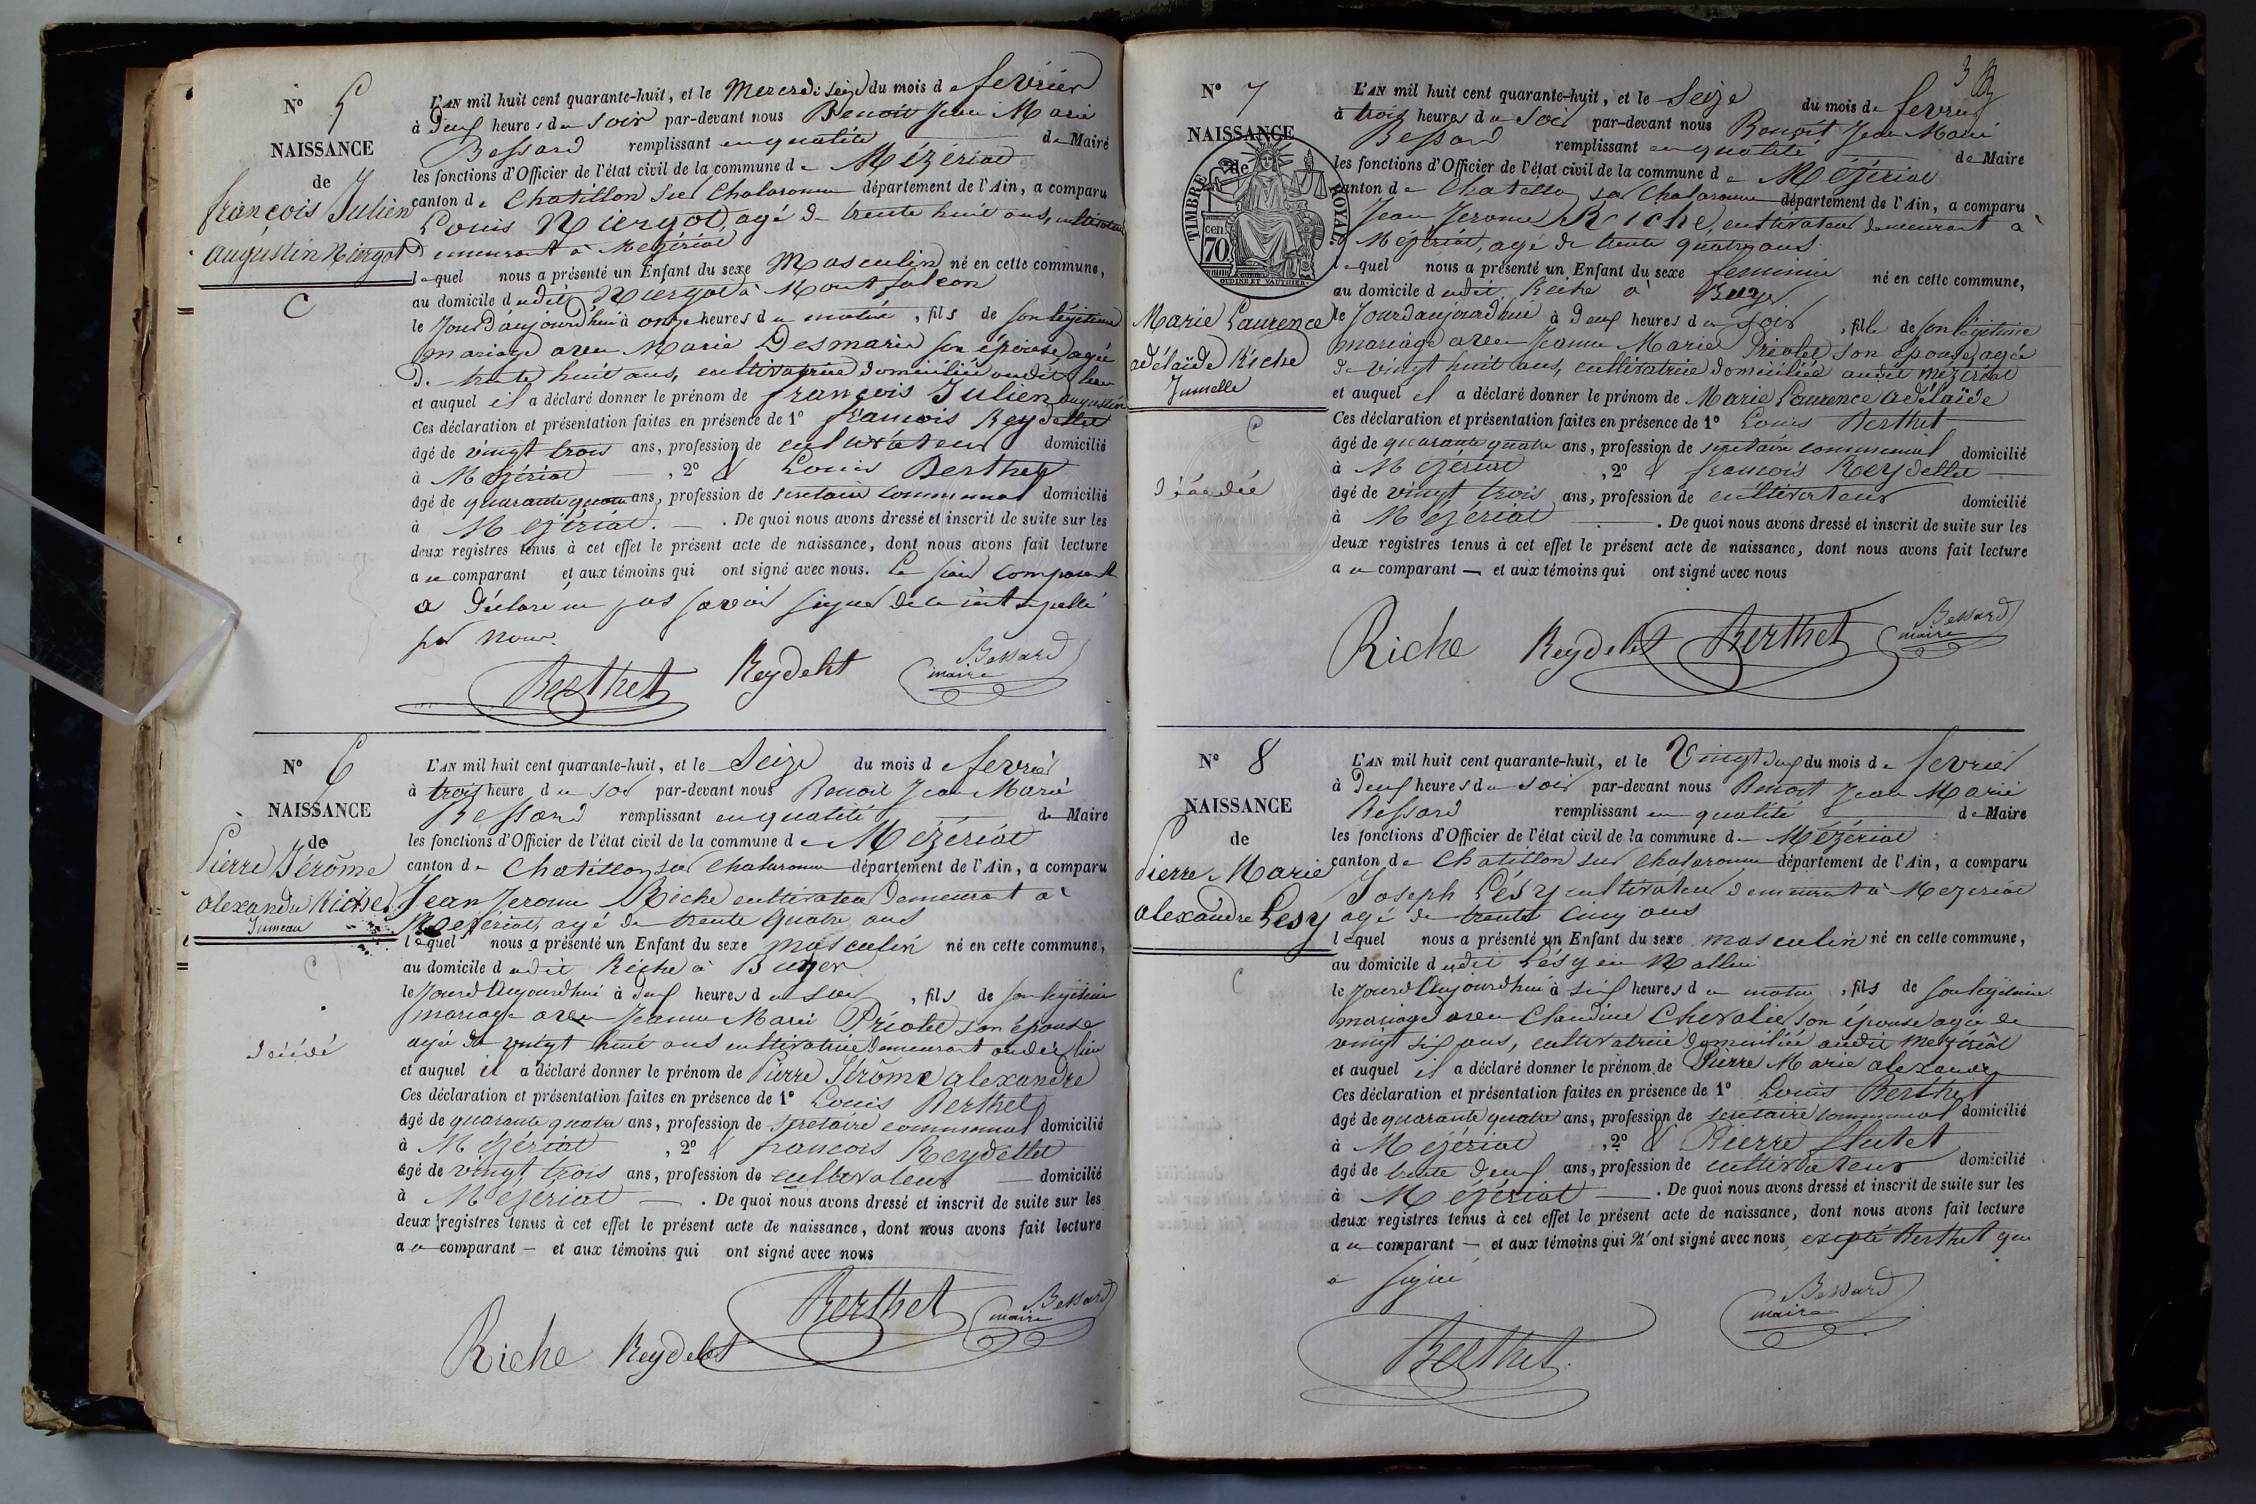 N° 5
NAISSANCE
de
françois Julien
augustin Niergot
C
L'AN mil huit cent quarante-huit, et le Mercredi seize du mois de fevrier
à Deux heures du Soir par-devant nous Benoit Jean Marie
Bessard remplissant en qualité de Maire
les fonctions d'Officier de l'état civil de la commune de Mézériat
canton de Chatillon sur Chalaronne département de l'Ain, a comparu
Louis Niergot, agé de trente huit ans, cultivateur
demeurant à Mezériat
lequel nous a présenté un Enfant du sexe Masculin né en cette commune,
au domicile dudit Niergot à Montfalcon
le Jour d'aujourd'hui à onze heures du matin, fils de son légitime
mariage avec Marie Desmaris son épouse, agée
de trente huit ans, cultivatrice domiciliée audit lieu
et auquel il a déclaré donner le prénom de françois Julien augustin
Ces déclaration et présentation faites en présence de 1° francois Reydellet
âgé de vingt trois ans, profession de cultivateur domicilié
à Mézériat, 2° & Louis Berthet
âgé de quarante quatre ans, profession de secretaire communal domicilié
à Mezériat. — . De quoi nous avons dressé et inscrit de suite sur les
deux registres tenus à cet effet le présent acte de naissance, dont nous avons fait lecture
au comparant et aux témoins qui ont signé avec nous. Le sieur comparant
a déclaré ne pas savoir signer de ce interpellé
par nous.
Berthet Reydelet Bessard
maire
N° 6
NAISSANCE
de
Pierre Jérôme
alexandre Riche
Jumeau
C
décédé
L'AN mil huit cent quarante-huit, et le Seize du mois de fevrier
à trois heure du soir par-devant nous Benoit Jean Marie
Bessard remplissant en qualité de Maire
les fonctions d'Officier de l'état civil de la commune de Mézériat
canton de Chatillon sur Chalaronne département de l'Ain, a comparu
Jean Jerome Riche cultivateur demeurant à
Mezériat, agé de trente quatre ans
lequel nous a présenté un Enfant du sexe masculin né en cette commune,
au domicile dudit Riche à Buyer
le Jour d'Aujourd'hui à deux heures du soir, fils de son légitime
mariage avec Jeanne Marie Priolet son épouse
agée de vingt huit ans cultivatrice demeurant audit lieu
et auquel il a déclaré donner le prénom de Pierre Jérôme alexandre
Ces déclaration et présentation faites en présence de 1° Louis Berthet
âgé de quarante quatre ans, profession de secretaire communal domicilié
à Mézériat, 2° & francois Reydellet
âgé de vingt trois ans, profession de cultivateur — domicilié
à Mezériat — . De quoi nous avons dressé et inscrit de suite sur les
deux registres tenus à cet effet le présent acte de naissance, dont nous avons fait lecture
au comparant — et aux témoins qui ont signé avec nous
Riche Reydelet Berthet Bessard
maire
3
N° 7
NAISSANCE
de
TIMBRE ROYAL
70 cen
OUDINE ET VAUTHIER
Marie Laurence
adélaïde Riche
Jumelle
C
décédée
L'AN mil huit cent quarante-huit, et le Seize du mois de fevrier
à trois heures du soir par-devant nous Benoit Jean Marie
Bessard remplissant en qualité de Maire
les fonctions d'Officier de l'état civil de la commune de Mézériat
canton de Chatillon sur Chalaronne département de l'Ain, a comparu
Jean Jerome Riche, cultivateur demeurant à
Mézériat, agé de trente quatre ans
lequel nous a présenté un Enfant du sexe feminin né en cette commune,
au domicile dudit Riche à Buyer
le Jour d'aujourd'hui à Deux heures du soir, fille de son légitime
mariage avec Jeanne Marie Priolet son épouse, agée
de vingt huit ans, cultivatrice domiciliée audit Mézériat
et auquel il a déclaré donner le prénom de Marie Laurence adélaïde
Ces déclaration et présentation faites en présence de 1° Louis Berthet
âgé de quarante quatre ans, profession de secretaire communal domicilié
à Mezériat, 2° & francois Reydellet
âgé de vingt trois ans, profession de cultivateur domicilié
à Mezériat — . De quoi nous avons dressé et inscrit de suite sur les
deux registres tenus à cet effet le présent acte de naissance, dont nous avons fait lecture
au comparant — et aux témoins qui ont signé avec nous
Riche Reydelet Berthet Bessard
maire
N° 8
NAISSANCE
de
Pierre Marie
alexandre Lesy
C
L'AN mil huit cent quarante-huit, et le Vingt deux du mois de fevrier
à Deux heures du soir par-devant nous Benoit Jean Marie
Bessard remplissant en qualité de Maire
les fonctions d'Officier de l'état civil de la commune de Mézériat
canton de Chatillon sur Chalaronne département de l'Ain, a comparu
Joseph Lésy cultivateur demeurant à Mezeriat
agé de trente cinq ans
lequel nous a présenté un Enfant du sexe masculin né en cette commune,
au domicile dudit Lésy en
le Jour d'Aujourd'hui à six heures du matin, fils de son légitime
mariage avec Claudine Chevalier son épouse agée de
vingt six ans, cultivatrice domiciliée audit Mezériat
et auquel il a déclaré donner le prénom de Pierre Marie alexandre
Ces déclaration et présentation faites en présence de 1° Louis Berthet
âgé de quarante quatre ans, profession de secretaire communal domicilié
à Mezériat, 2° & Pierre
âgé de trente deux ans, profession de cultivateur domicilié
à Mézériat — . De quoi nous avons dressé et inscrit de suite sur les
deux registres tenus à cet effet le présent acte de naissance, dont nous avons fait lecture
au comparant — et aux témoins qui N'ont signé avec nous, excepté Berthet qui
a signé
Berthet Bessard
maire